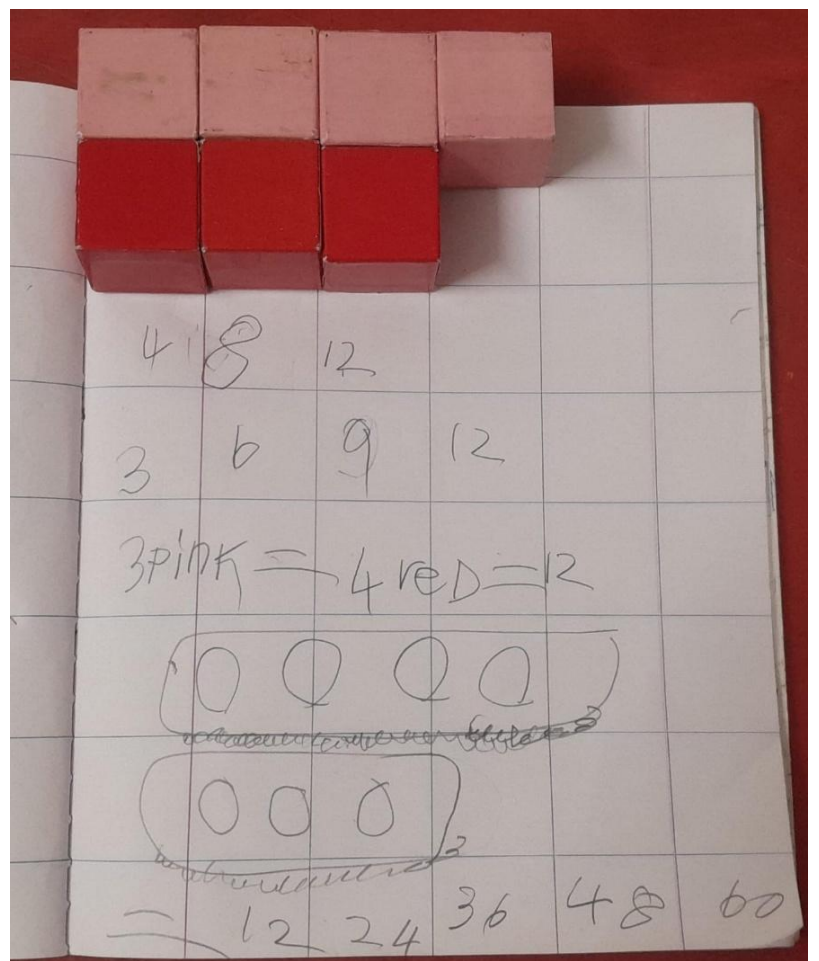 4 8 12
3 6 9 12
3pink = 4 reD = 12
= 12 24 36 48 60